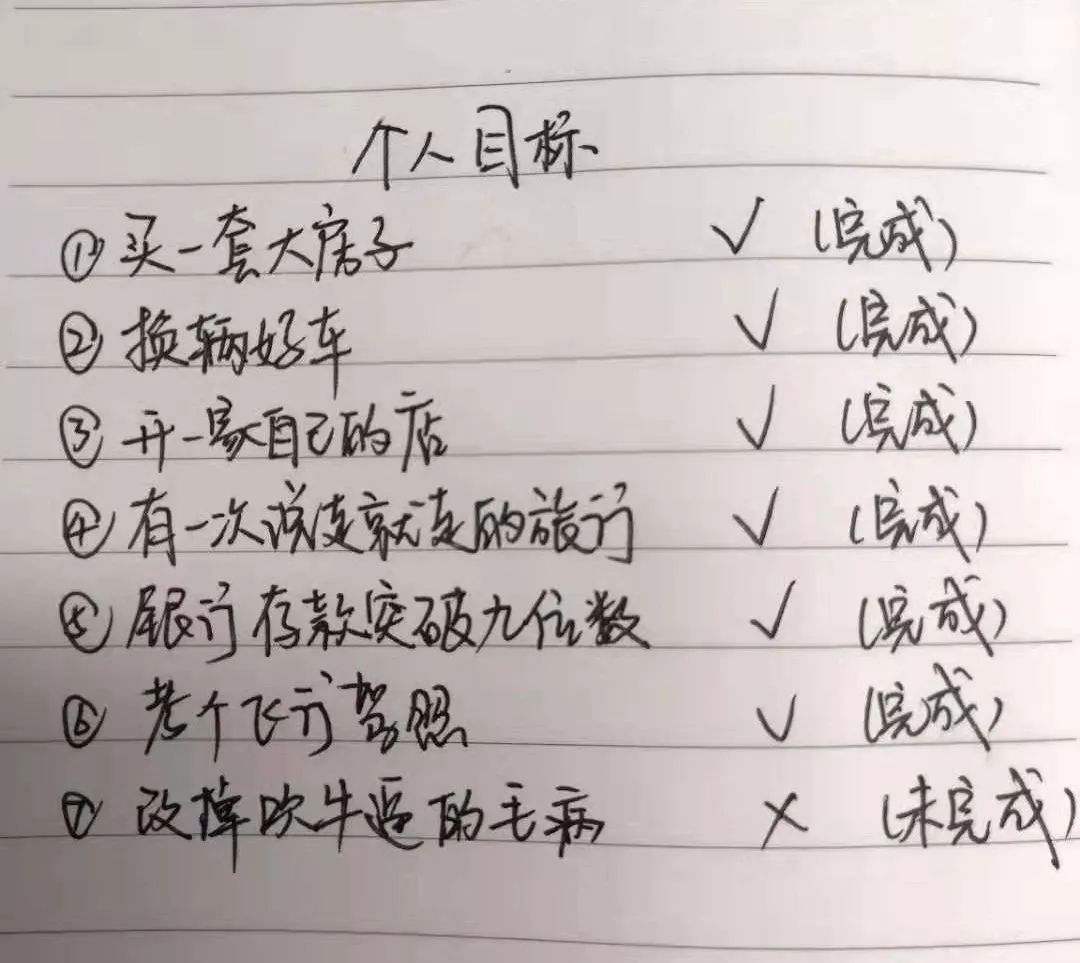 个人目标
①买一套大房子 ✓ (完成)
②换辆好车 ✓ (完成)
③开一家自己的店 ✓ (完成)
④有一次说走就走的旅行 ✓ (完成)
⑤银行存款突破九位数 ✓ (完成)
⑥考个飞行驾照 ✓ (完成)
⑦改掉吹牛逼的毛病 × (未完成)